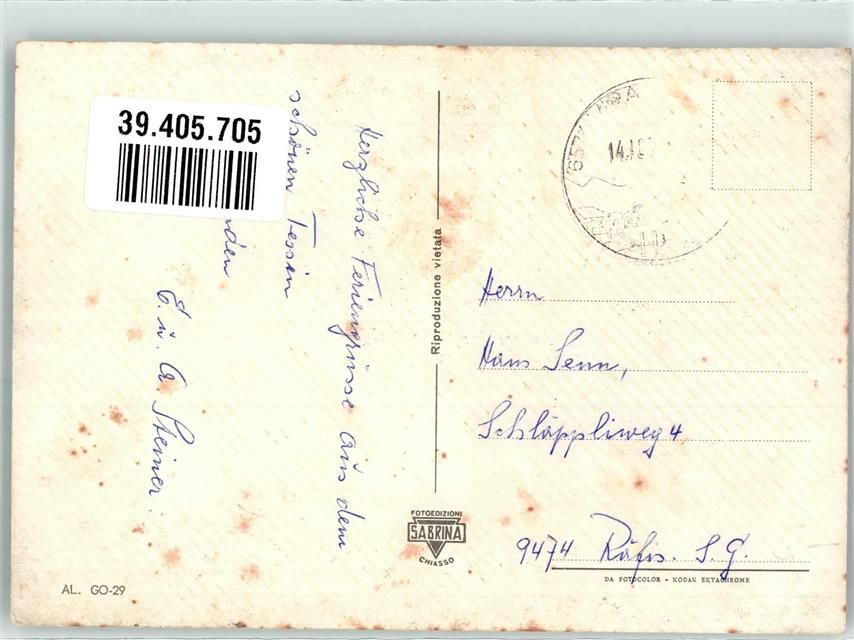 39.405.705
Herzliche Feriengrüsse aus dem
schönen Tessin
E. u. A. Steiner.
Riproduzione vietata
14.
Herrn
Hans Senn,
Schläppliweg 4
9474 Räfis. S. G.
FOTOEDIZIONI
SABRINA
CHIASSO
AL. GO-29
DA FOTOCOLOR - KODAK EKTACHROME